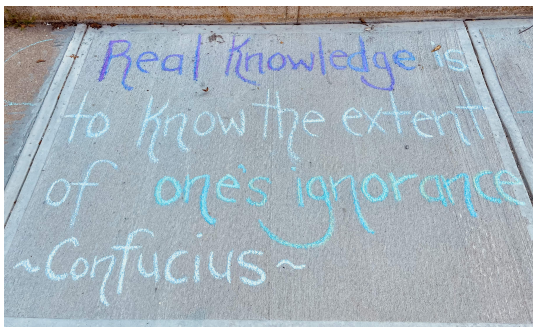 Real Knowledge is
to Know the extent
of one's ignorance
~Confucius~